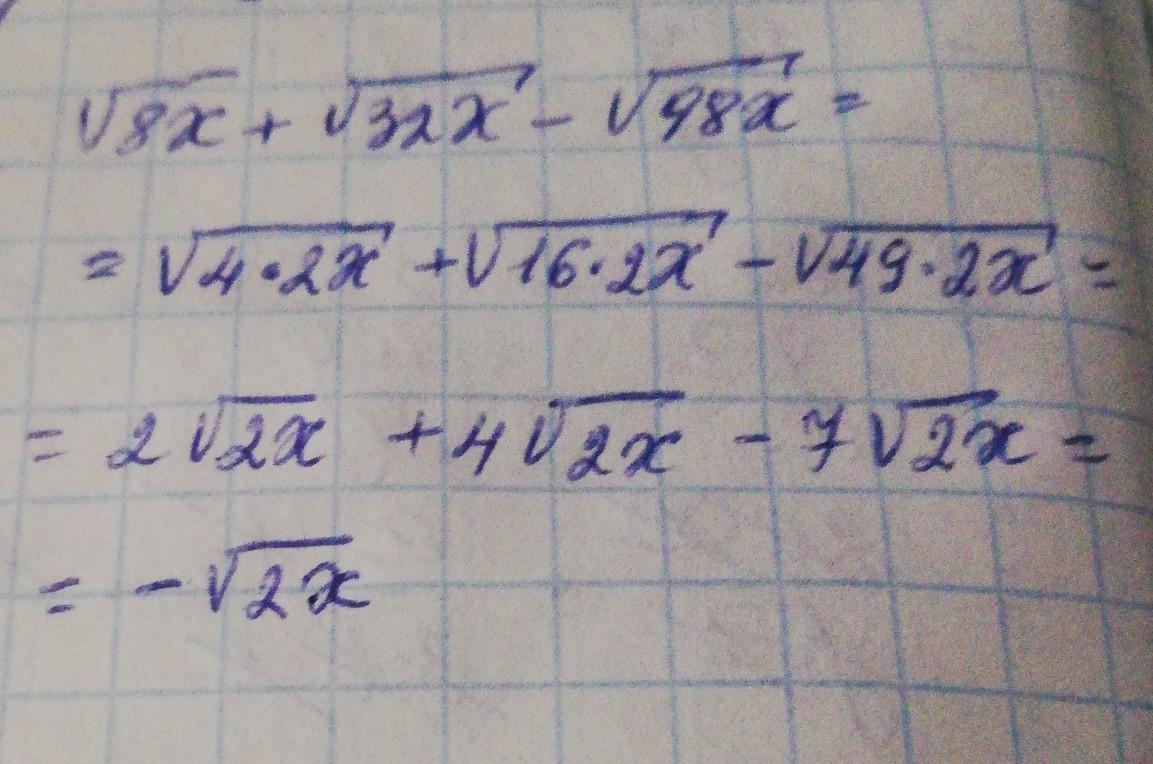 √8x + √32x - √98x =
= √4·2x + √16·2x - √49·2x =
= 2√2x + 4√2x - 7√2x =
= -√2x